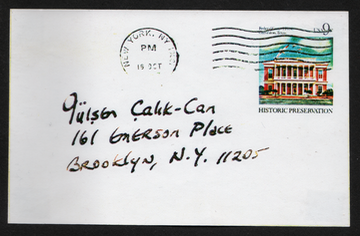 NEW YORK, NY
PM
15 OCT
USA 9c
HISTORIC PRESERVATION
Gülsen Çalık-Can
161 Emerson Place
Brooklyn, N.Y. 11205